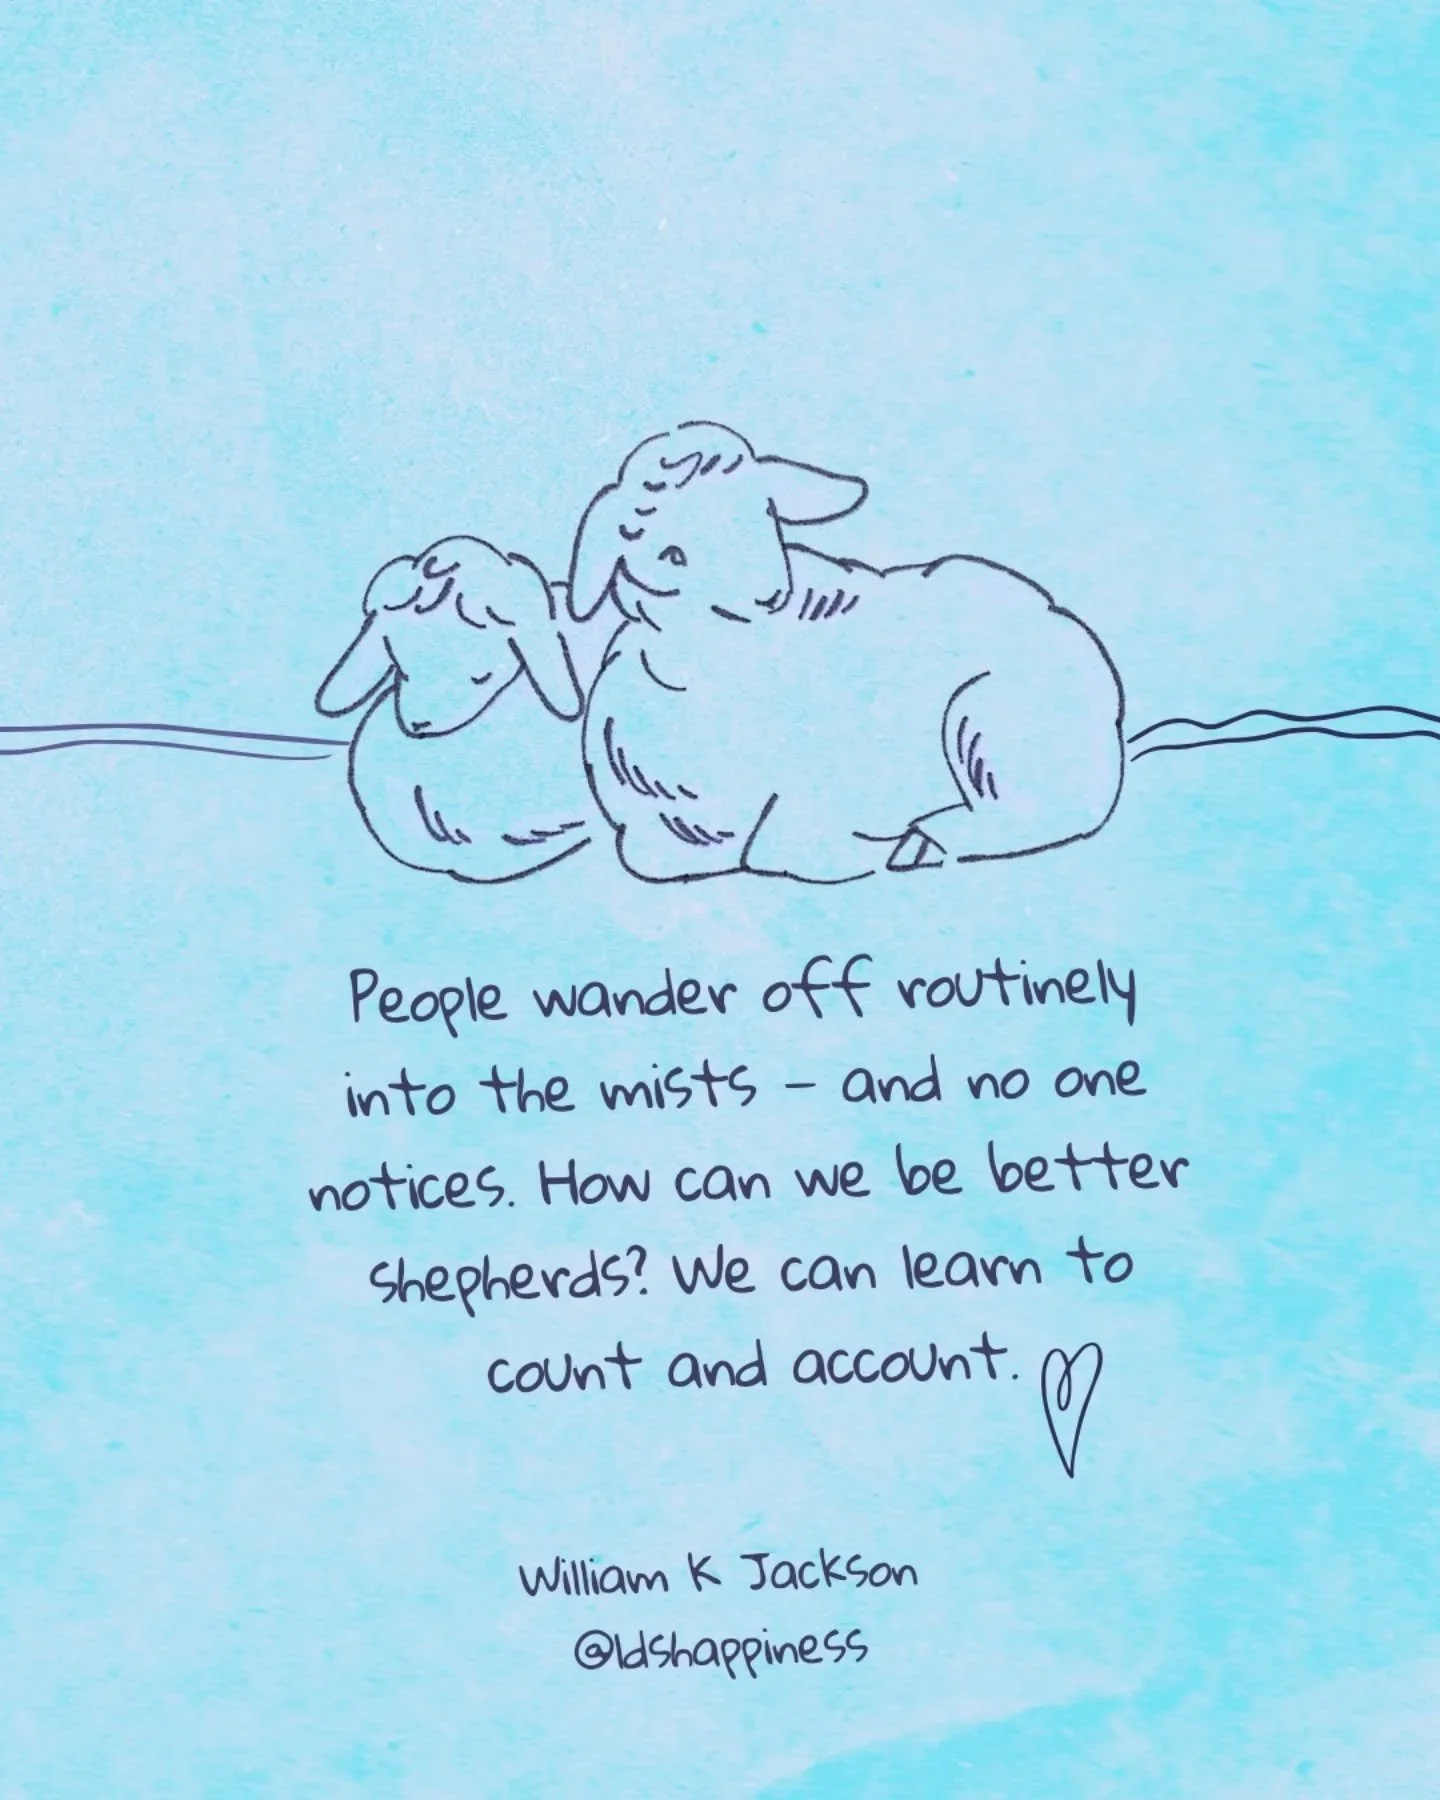 People wander off routinely
into the mists – and no one
notices. How can we be better
shepherds? We can learn to
count and account.
William K Jackson
@ldshappiness